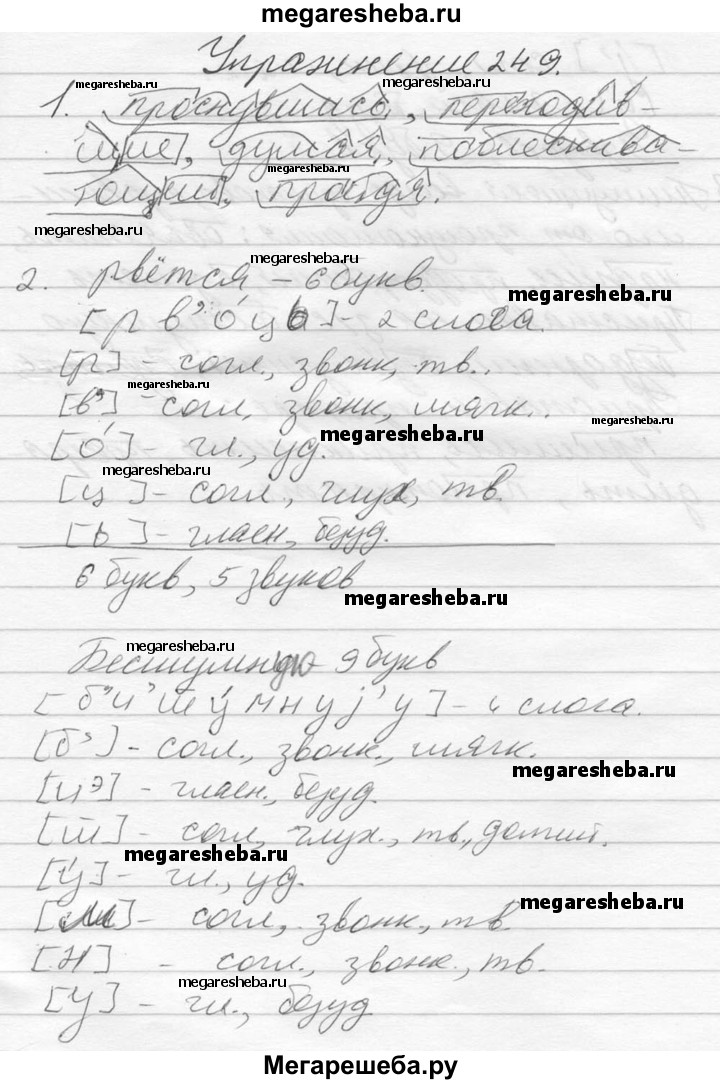 megaresheba.ru
Упражнение 249.
megaresheba.ru
megaresheba.ru
1. проснувшись, переходив-
шие, думая, поблескива-
ющий, пройдя.
megaresheba.ru
megaresheba.ru
2. рвётся – 6 букв.
megaresheba.ru
[р в' о́ ц ъ] – 2 слога.
[р] – согл., звонк, тв..
megaresheba.ru
[в'] – согл, звонк, мягк..
megaresheba.ru
megaresheba.ru
[о́] – гл., уд.
megaresheba.ru
[ц] – согл., глух, тв.
[ъ] – гласн, безуд.
6 букв, 5 звуков
megaresheba.ru
megaresheba.ru
Бесшумную 9 букв
[б' и э ш у́ м н у j' у] – 4 слога.
[б'] – согл., звонк., мягк.
megaresheba.ru
[иэ] – гласн., безуд.
[ш] – согл, глух., тв, долгий.
megaresheba.ru
[у́] – гл., уд.
[м] – согл, звонк, тв
megaresheba.ru
[н] – согл., звонк., тв.
megaresheba.ru
[у] – гл., безуд
Мегарешеба.ру